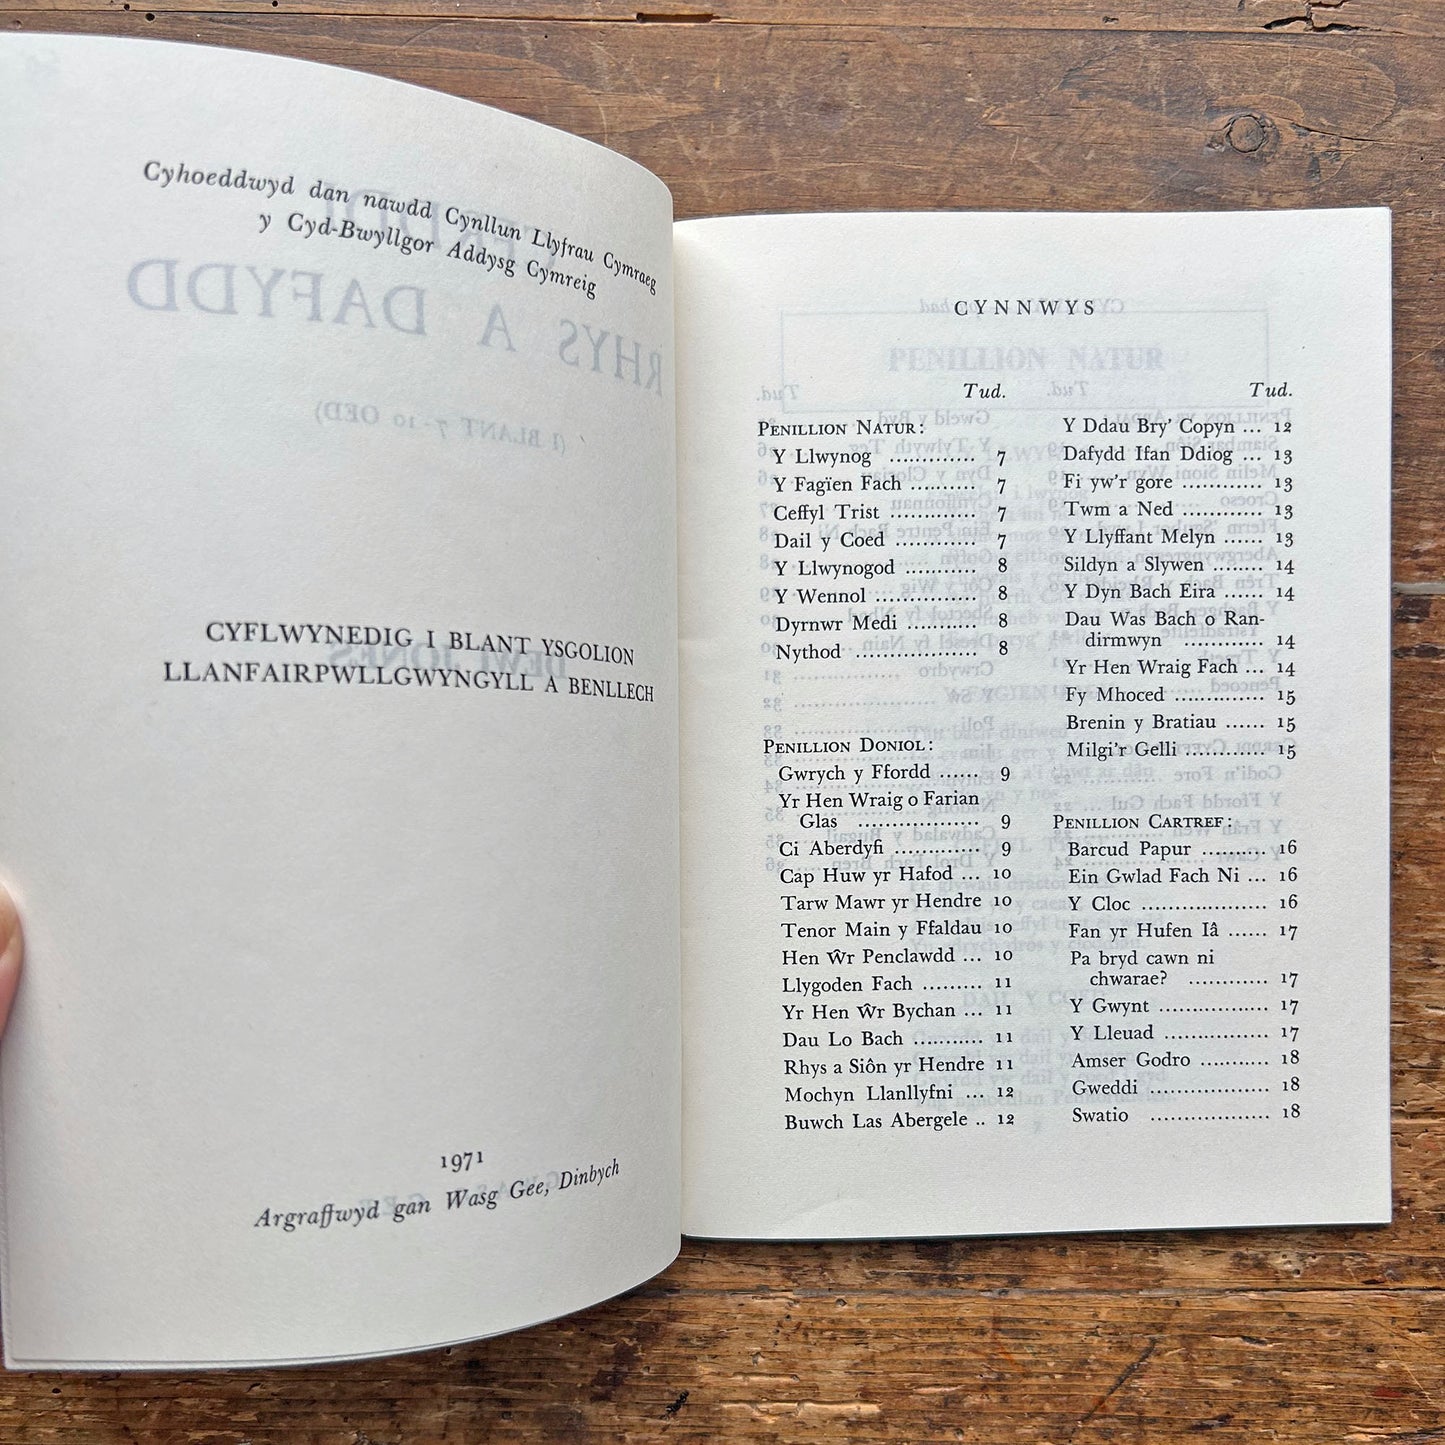 Cyhoeddwyd dan nawdd Cynllun Llyfrau Cymraeg
y Cyd-Bwyllgor Addysg Cymreig
CYFLWYNEDIG I BLANT YSGOLION
LLANFAIRPWLLGWYNGYLL A BENLLECH
1971
Argraffwyd gan Wasg Gee, Dinbych
CYNNWYS
Tud.
PENILLION NATUR:
Y Llwynog ............ 7
Y Fagïen Fach .......... 7
Ceffyl Trist ............ 7
Dail y Coed ............ 7
Y Llwynogod .......... 8
Y Wennol .............. 8
Dyrnwr Medi .......... 8
Nythod ................ 8
PENILLION DONIOL:
Gwrych y Ffordd ...... 9
Yr Hen Wraig o Farian
Glas .................. 9
Ci Aberdyfi ............. 9
Cap Huw yr Hafod ... 10
Tarw Mawr yr Hendre 10
Tenor Main y Ffaldau 10
Hen Ŵr Penclawdd ... 10
Llygoden Fach ......... 11
Yr Hen Ŵr Bychan ... 11
Dau Lo Bach ........... 11
Rhys a Siôn yr Hendre 11
Mochyn Llanllyfni ... 12
Buwch Las Abergele .. 12
Tud.
Y Ddau Bry' Copyn ... 12
Dafydd Ifan Ddiog ... 13
Fi yw'r gore ............ 13
Twm a Ned ............ 13
Y Llyffant Melyn ...... 13
Sildyn a Slywen ....... 14
Y Dyn Bach Eira ...... 14
Dau Was Bach o Ran-
dirmwyn ............ 14
Yr Hen Wraig Fach ... 14
Fy Mhoced .............. 15
Brenin y Bratiau ...... 15
Milgi'r Gelli ............ 15
PENILLION CARTREF:
Barcud Papur .......... 16
Ein Gwlad Fach Ni ... 16
Y Cloc ................... 16
Fan yr Hufen Iâ ...... 17
Pa bryd cawn ni
chwarae? ............ 17
Y Gwynt ................ 17
Y Lleuad ................ 17
Amser Godro ........... 18
Gweddi .................. 18
Swatio .................. 18